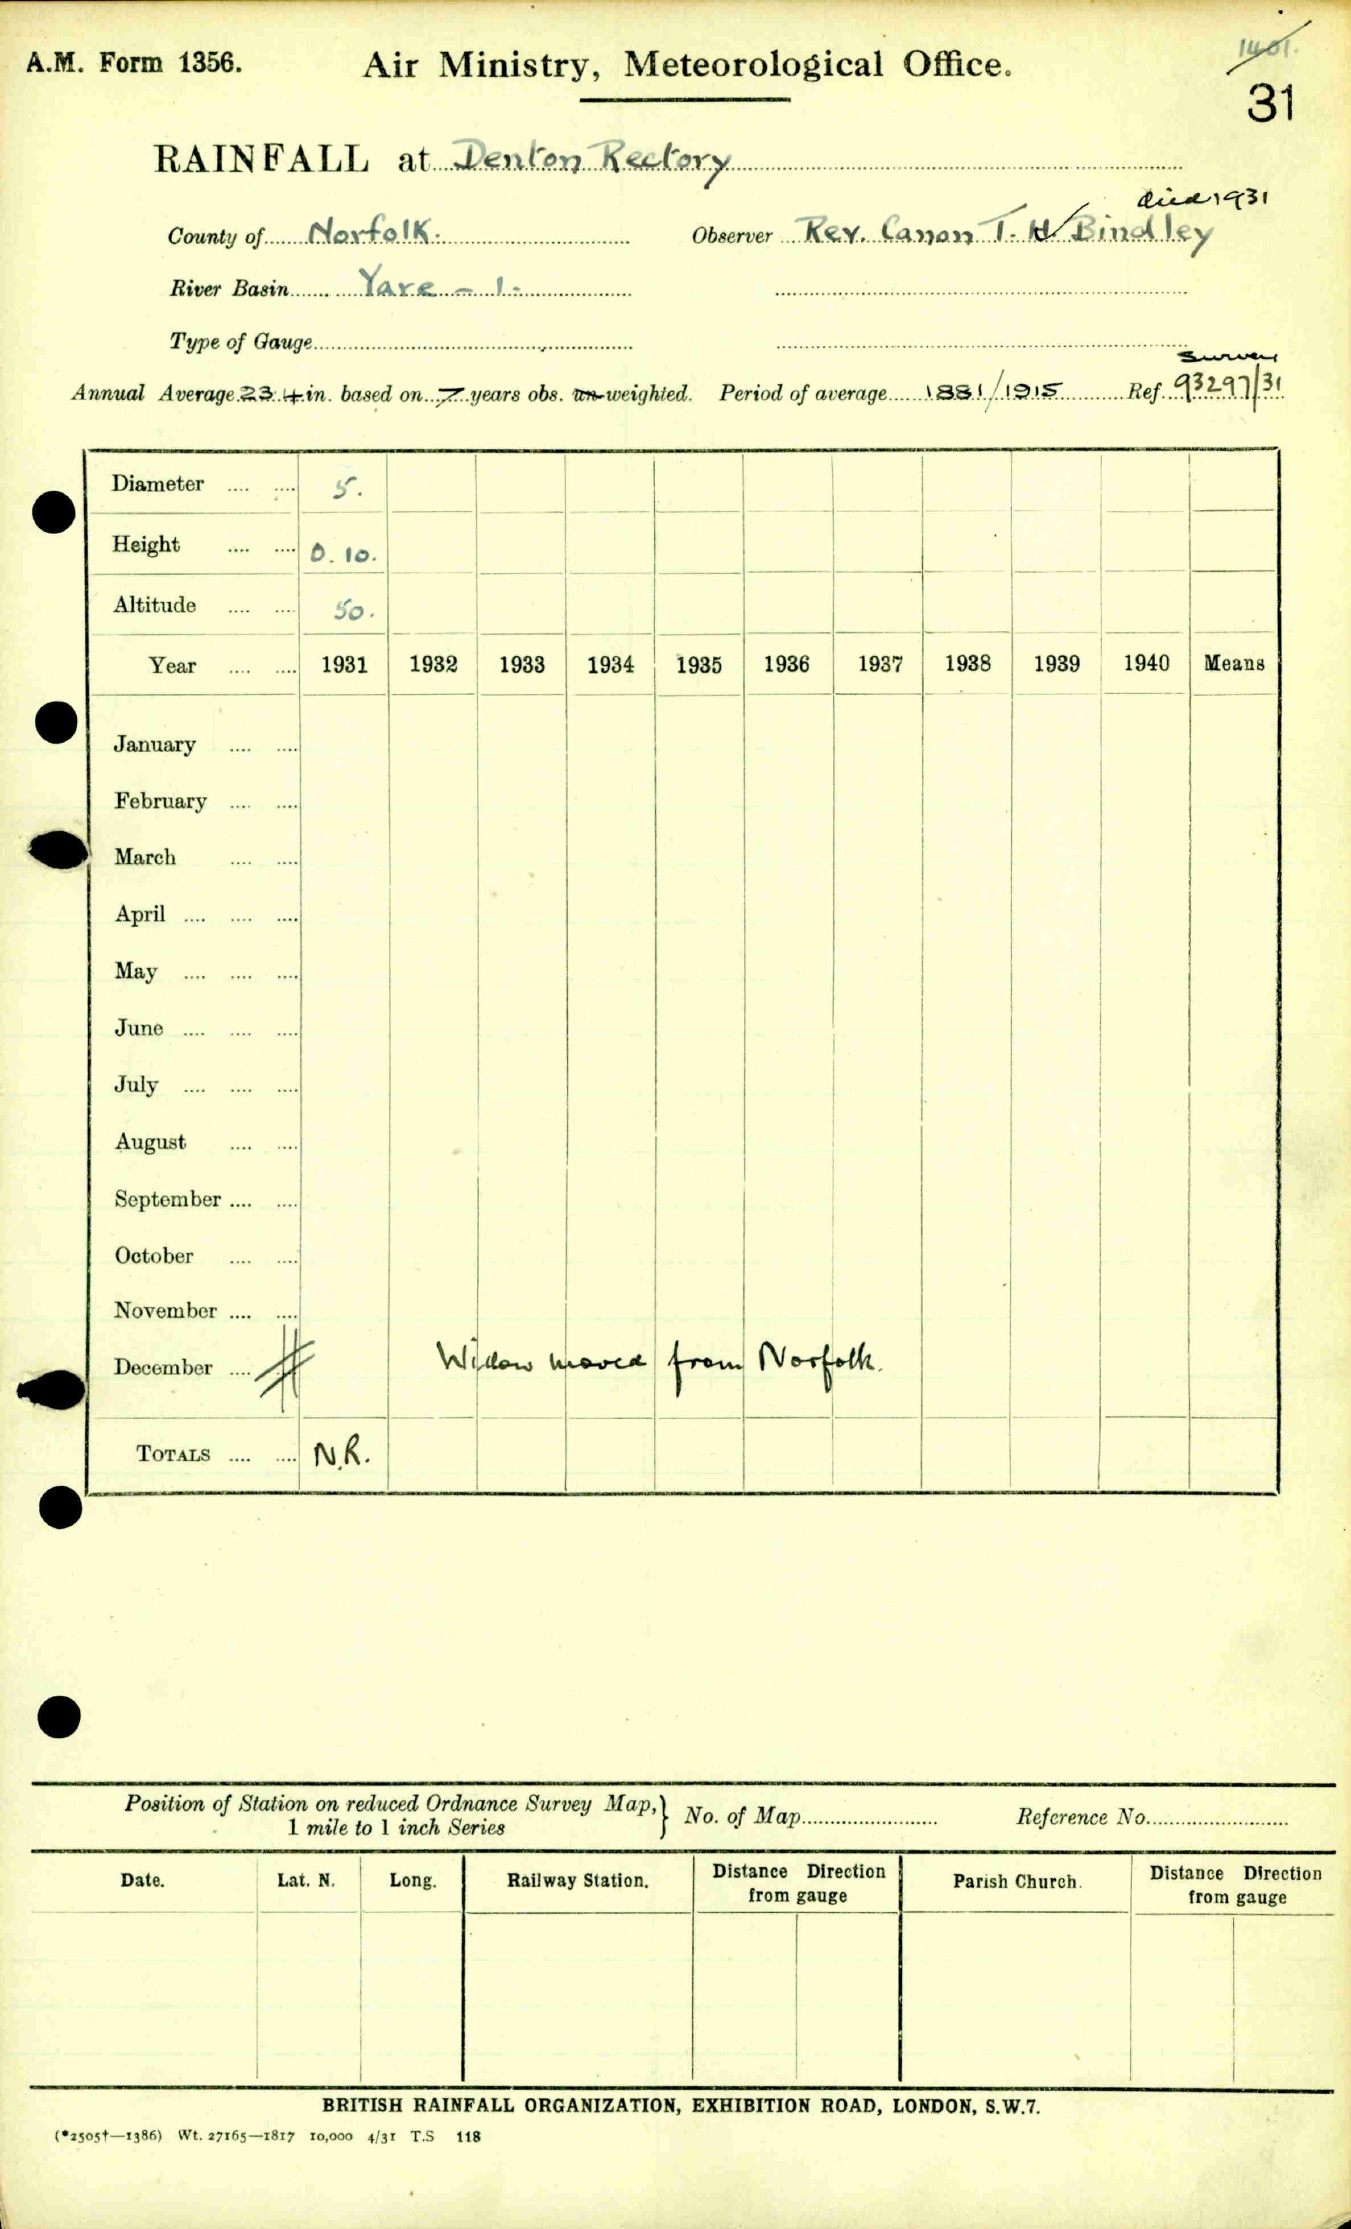 A.M. Form 1356.
Air Ministry, Meteorological Office.
1401.
31
RAINFALL at Denton Rectory
died 1931
County of Norfolk. Observer Rev. Canon T. H Bindley
River Basin Yare - 1.
Type of Gauge
Survey
Annual Average 23.4 in. based on 7 years obs. un-weighted. Period of average 1881/1915 Ref. 93297/31
Diameter .... .... 5.
Height .... .... 0.10.
Altitude .... .... 50.
Year .... .... 1931 1932 1933 1934 1935 1936 1937 1938 1939 1940 Means
January .... ....
February .... ....
March .... ....
April .... .... ....
May .... .... ....
June .... .... ....
July .... .... ....
August .... ....
September .... ....
October .... ....
November .... ....
December .... Widow moved from Norfolk.
TOTALS .... .... N.R.
Position of Station on reduced Ordnance Survey Map,} No. of Map Reference No.
1 mile to 1 inch Series
Date. Lat. N. Long. Railway Station. Distance Direction from gauge Parish Church. Distance Direction from gauge
BRITISH RAINFALL ORGANIZATION, EXHIBITION ROAD, LONDON, S.W.7.
(*2505†—1386) Wt. 27165—1817 10,000 4/31 T.S 118